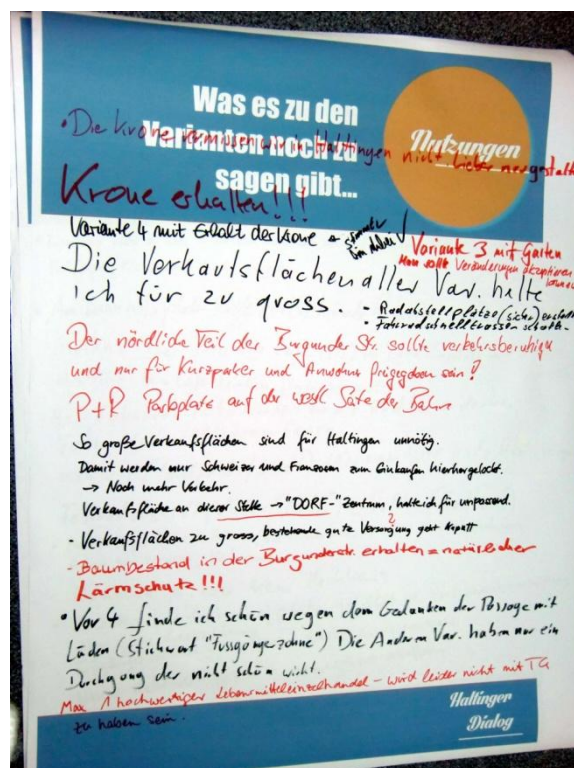 Was es zu den
Varianten noch zu
sagen gibt...
Nutzungen
• Die Krone vermissen wir in Haltingen nicht lieber neu gestalt
Krone erhalten!!!
Variante 4 mit Erhalt der Krone
Variante 3 mit Garten
Man sollte Veränderungen akzeptieren
Die Verkaufsflächen aller Var. halte
ich für zu gross.
- Radabstellplätze (sicher)
- Fahrradschnelltrassen
Der nördliche Teil der Burgunder Str. sollte verkehrsberuhigt
und nur für Kurzparker und Anwohner freigegeben sein!
P+R Parkplatz auf der westl. Seite der Bahn
So große Verkaufsflächen sind für Haltingen unnötig.
Damit werden nur Schweizer und Franzosen zum Einkaufen hierhergelockt.
→ Noch mehr Verkehr.
Verkaufsfläche an dieser Stelle → "DORF-"Zentrum, halte ich für unpassend.
- Verkaufsflächen zu gross, bestehende gute Versorgung geht kaputt
- Baumbestand in der Burgunderstr. erhalten = natürlicher
Lärmschutz!!!
• Var 4 finde ich schön wegen dem Gedanken der Passage mit
Läden (Stichwort "Fussgängerzohne") Die Anderen Var. haben nur ein
Durchgang der nicht schön wirkt.
Max 1 hochwertiger Lebensmitteleinzelhandel - wird leider nicht mit TG
zu haben sein.
Haltinger
Dialog